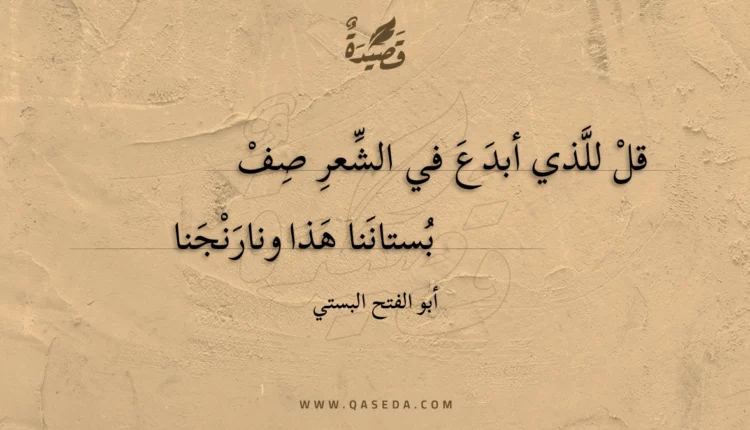 قَصِيْدَةٌ
قلْ للَّذي أبدَعَ في الشِّعرِ صِفْ
بُستانَنا هَذا ونارَنْجَنا
أبو الفتح البستي
WWW.QASEDA.COM